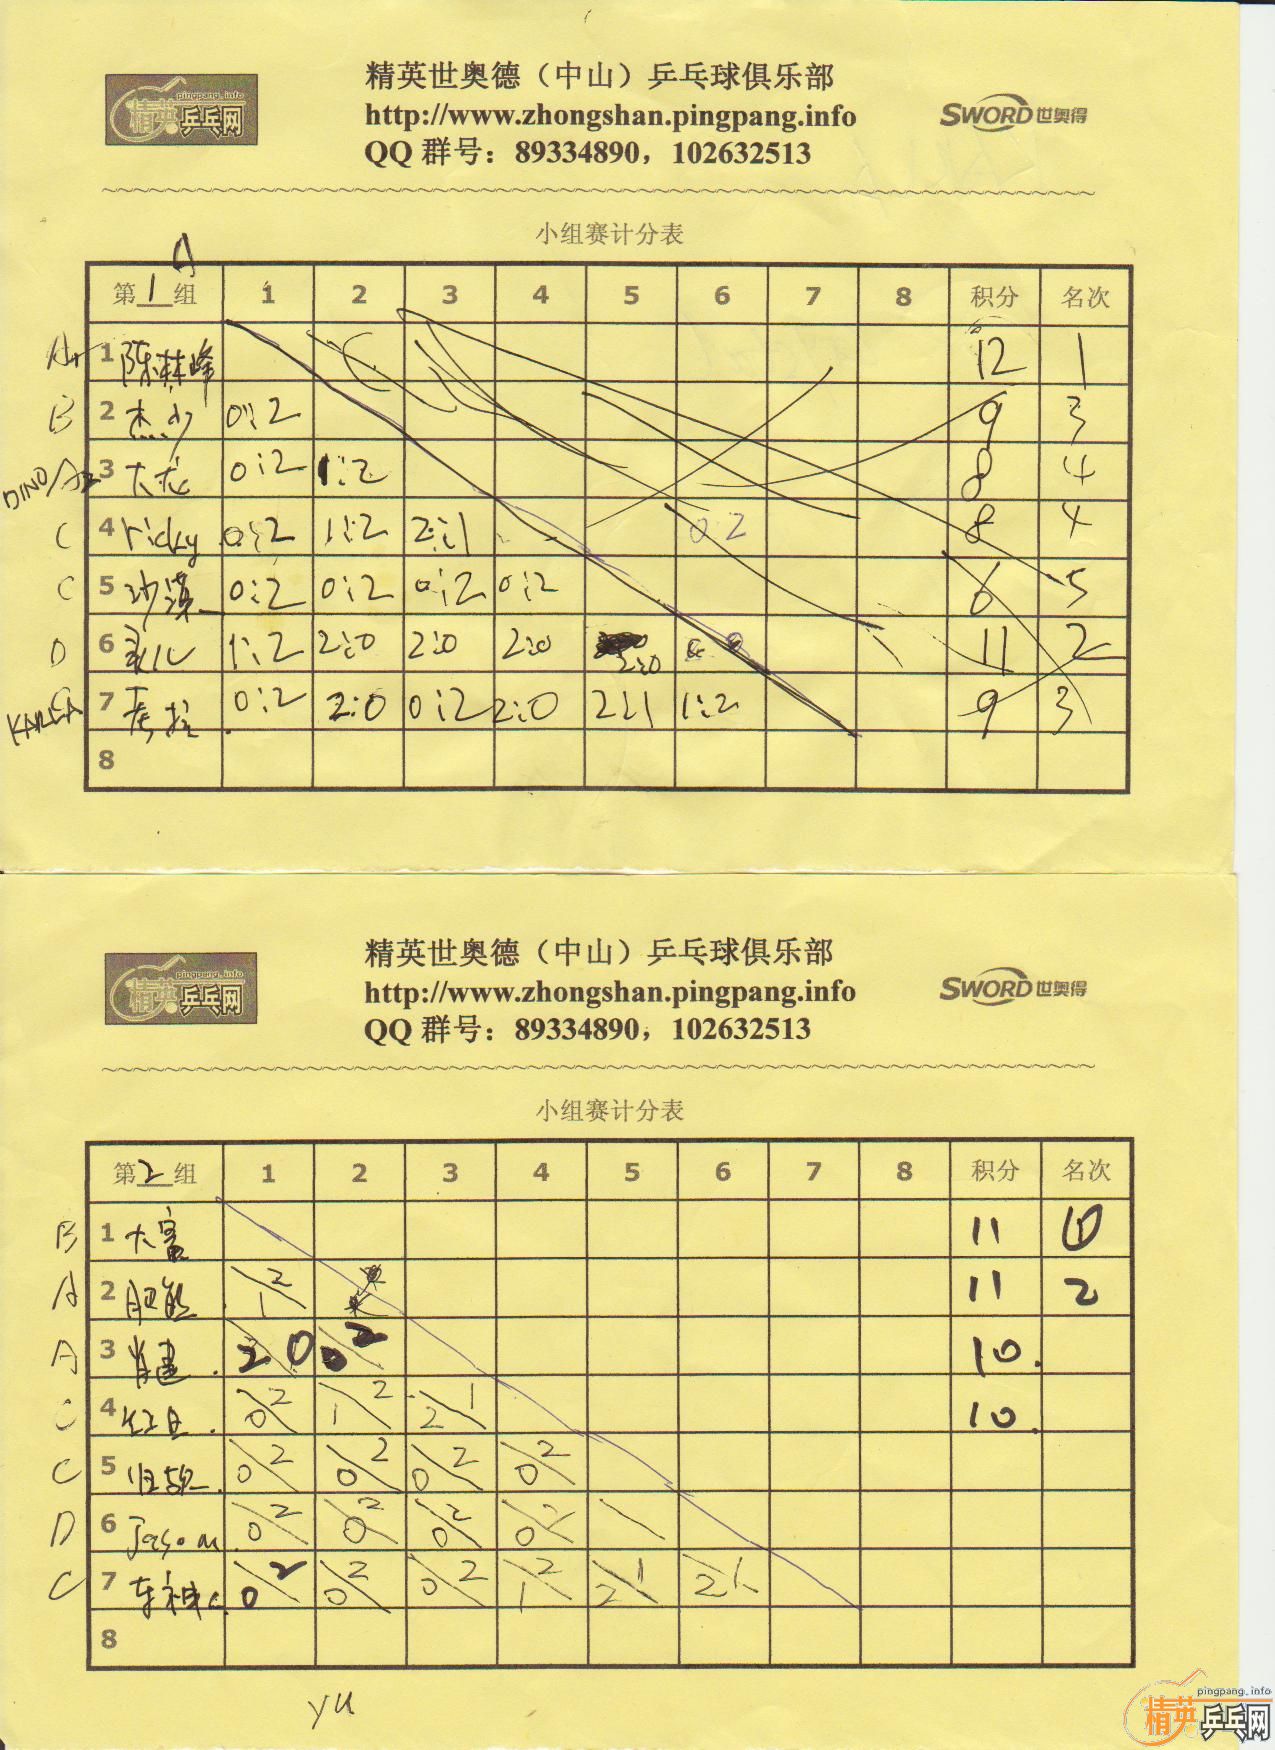 精英世奥德（中山）乒乓球俱乐部
pingpang.info
精英乒乓网
http://www.zhongshan.pingpang.info
SWORD世奥得
QQ 群号：89334890，102632513
小组赛计分表
A
第1组 1 2 3 4 5 6 7 8 积分 名次
1 陈林峰 12 1
B 2 杰少 0:2 9 3
DINO/A2 3 大龙 0:2 1:2 8 4
C 4 ricky 0:2 1:2 2:1 0 2 8 4
C 5 沙漠 0:2 0:2 0:2 0:2 6 5
D 6 1:2 2:0 2:0 2:0 2:0 11 2
7 考拉 0:2 2:0 0:2 2:0 2:1 1:2 9 3
8
精英世奥德（中山）乒乓球俱乐部
pingpang.info
精英乒乓网
http://www.zhongshan.pingpang.info
SWORD世奥得
QQ 群号：89334890，102632513
小组赛计分表
第2组 1 2 3 4 5 6 7 8 积分 名次
B 1 大富 11 1
A 2 1 2 11 2
A 3 肖建 2 0 0 2 10
C 4 红日 0 2 1 2 2 1 10
C 5 0 2 0 2 0 2 0 2
D 6 Jason 0 2 0 2 0 2 0 2
C 7 车神 0 2 0 2 0 2 1 2 2 1 2 1
8
yu
pingpang.info
精英乒乓网